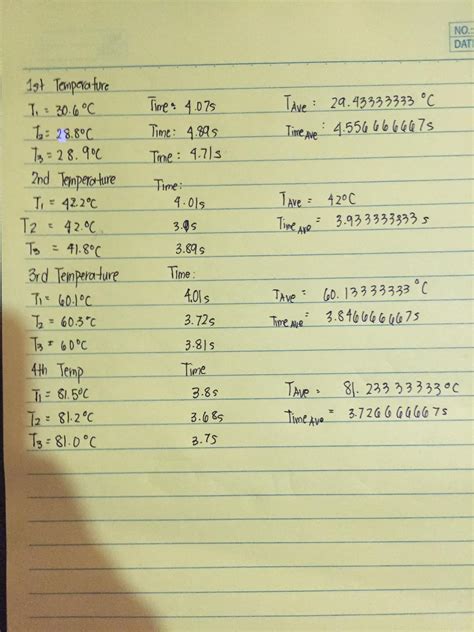 NO.:
DATE
1st Temperature
T₁ = 30.6°C Time: 4.07s TAve : 29.43333333 °C
T₂= 28.8°C Time: 4.89s Time Ave : 4.556666667s
T₃ = 28.9°C Time: 4.71s
2nd Temperature Time:
T₁ = 42.2°C 4.01s TAve = 42°C
T₂ = 42.°C 3.9s Time Ave = 3.933333333 s
T₃ = 41.8°C 3.89s
3rd Temperature Time:
T₁= 60.1°C 4.01s TAve = 60.13333333 °C
T₂ = 60.3°C 3.72s Time Ave = 3.846666667s
T₃ = 60°C 3.81s
4th Temp Time
T₁ = 81.5°C 3.8s TAve = 81.23333333°C
T₂ = 81.2°C 3.68s Time Ave = 3.726666667s
T₃ = 81.0°C 3.7s